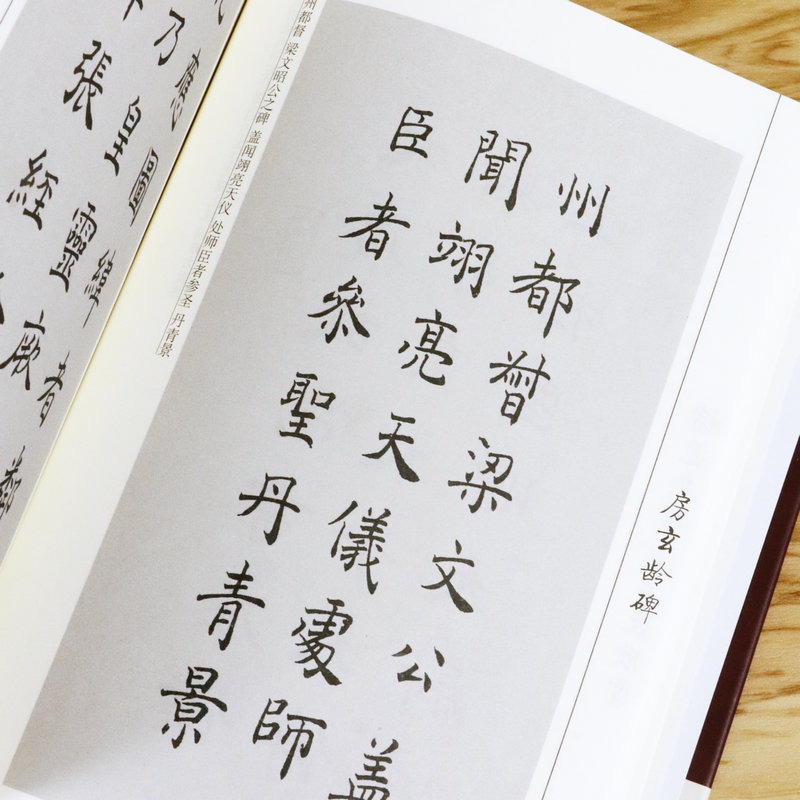 房玄龄碑
州都督梁文公盖
聞翊亮天儀處師
臣者參聖丹青景
州都督 梁文昭公之碑 盖闻翊亮天仪 处师臣者参圣 丹青景
應圖緯者
乃皇靈厥
張經